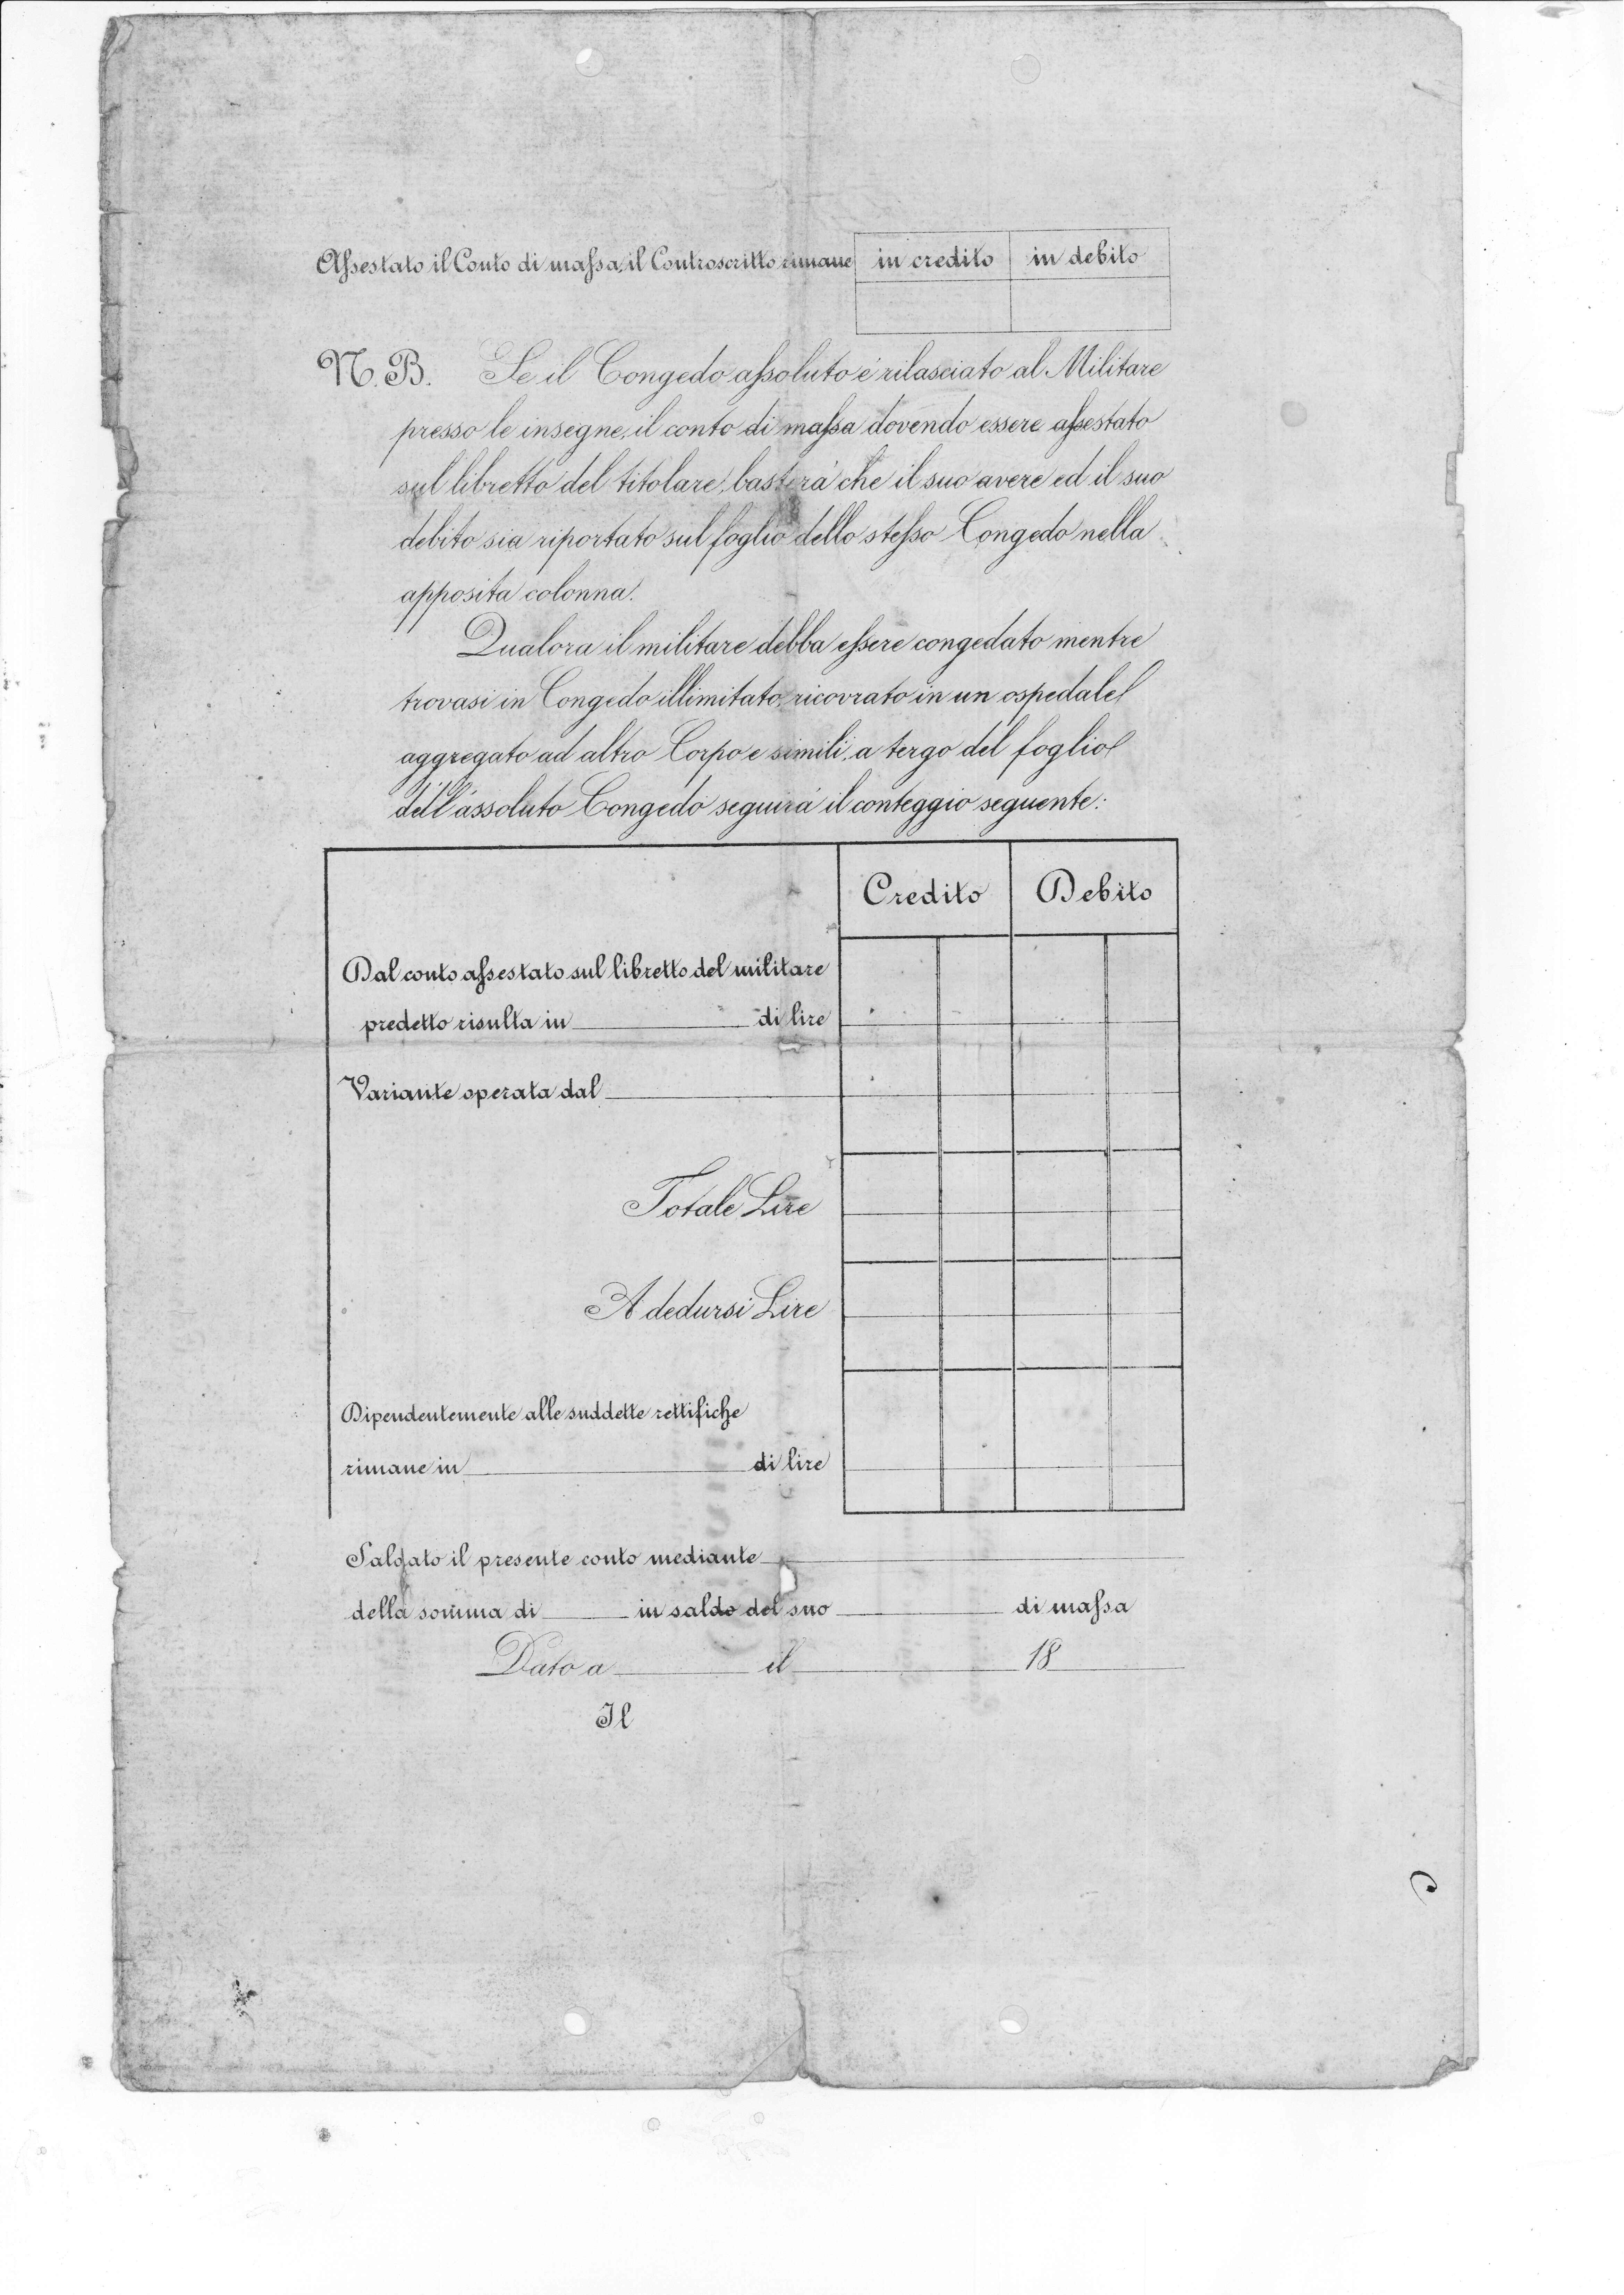 Assestato il Conto di massa, il Controscritto rimane in credito in debito
N. B. Se il Congedo assoluto é rilasciato al Militare
presso le insegne, il conto di massa dovendo essere assestato
sul libretto del titolare, basterá che il suo avere ed il suo
debito sia riportato sul foglio dello stesso Congedo nella
apposita colonna.
Qualora il militare debba essere congedato mentre
trovasi in Congedo illimitato, ricovrato in un ospedale
aggregato ad altro Corpo e simili, a tergo del foglio
dell'assoluto Congedo seguirá il conteggio seguente:
Credito Debito
Dal conto assestato sul libretto del militare
predetto risulta in di lire
Variante operata dal
Totale Lire
A dedursi Lire
Dipendentemente alle suddette rettifiche
rimane in di lire
Saldato il presente conto mediante
della somma di in saldo del suo di massa
Dato a il 18
Il